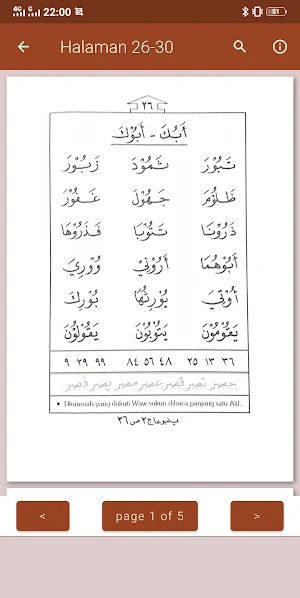 4G G 22:00 51
Halaman 26-30
٢٦
أَبُكَ - أَبُوْكَ
تَبُوْرَ ثَمُوْدَ زَبُوْرَ
ظَلُوْمَ جَهُوْلَ غَفُوْرَ
ذَرُوْنَا تَتُوْبَا فَذَرُوْهَا
أَبُوْهُمَا أَرُوْنِيْ وُوْرِيَ
أُوْتِيَ يُوْرِثُهَا بُوْرِكَ
يَقُوْمُوْنَ يَتُوْبُوْنَ يَقُوْلُوْنَ
٣٦ ١٣ ٢٥ ٤٨ ٥٦ ٨٤ ٩٩ ٢٩ ٩
• Dlommah yang diikuti Waw sukun dibaca panjang satu Alif.
page 1 of 5